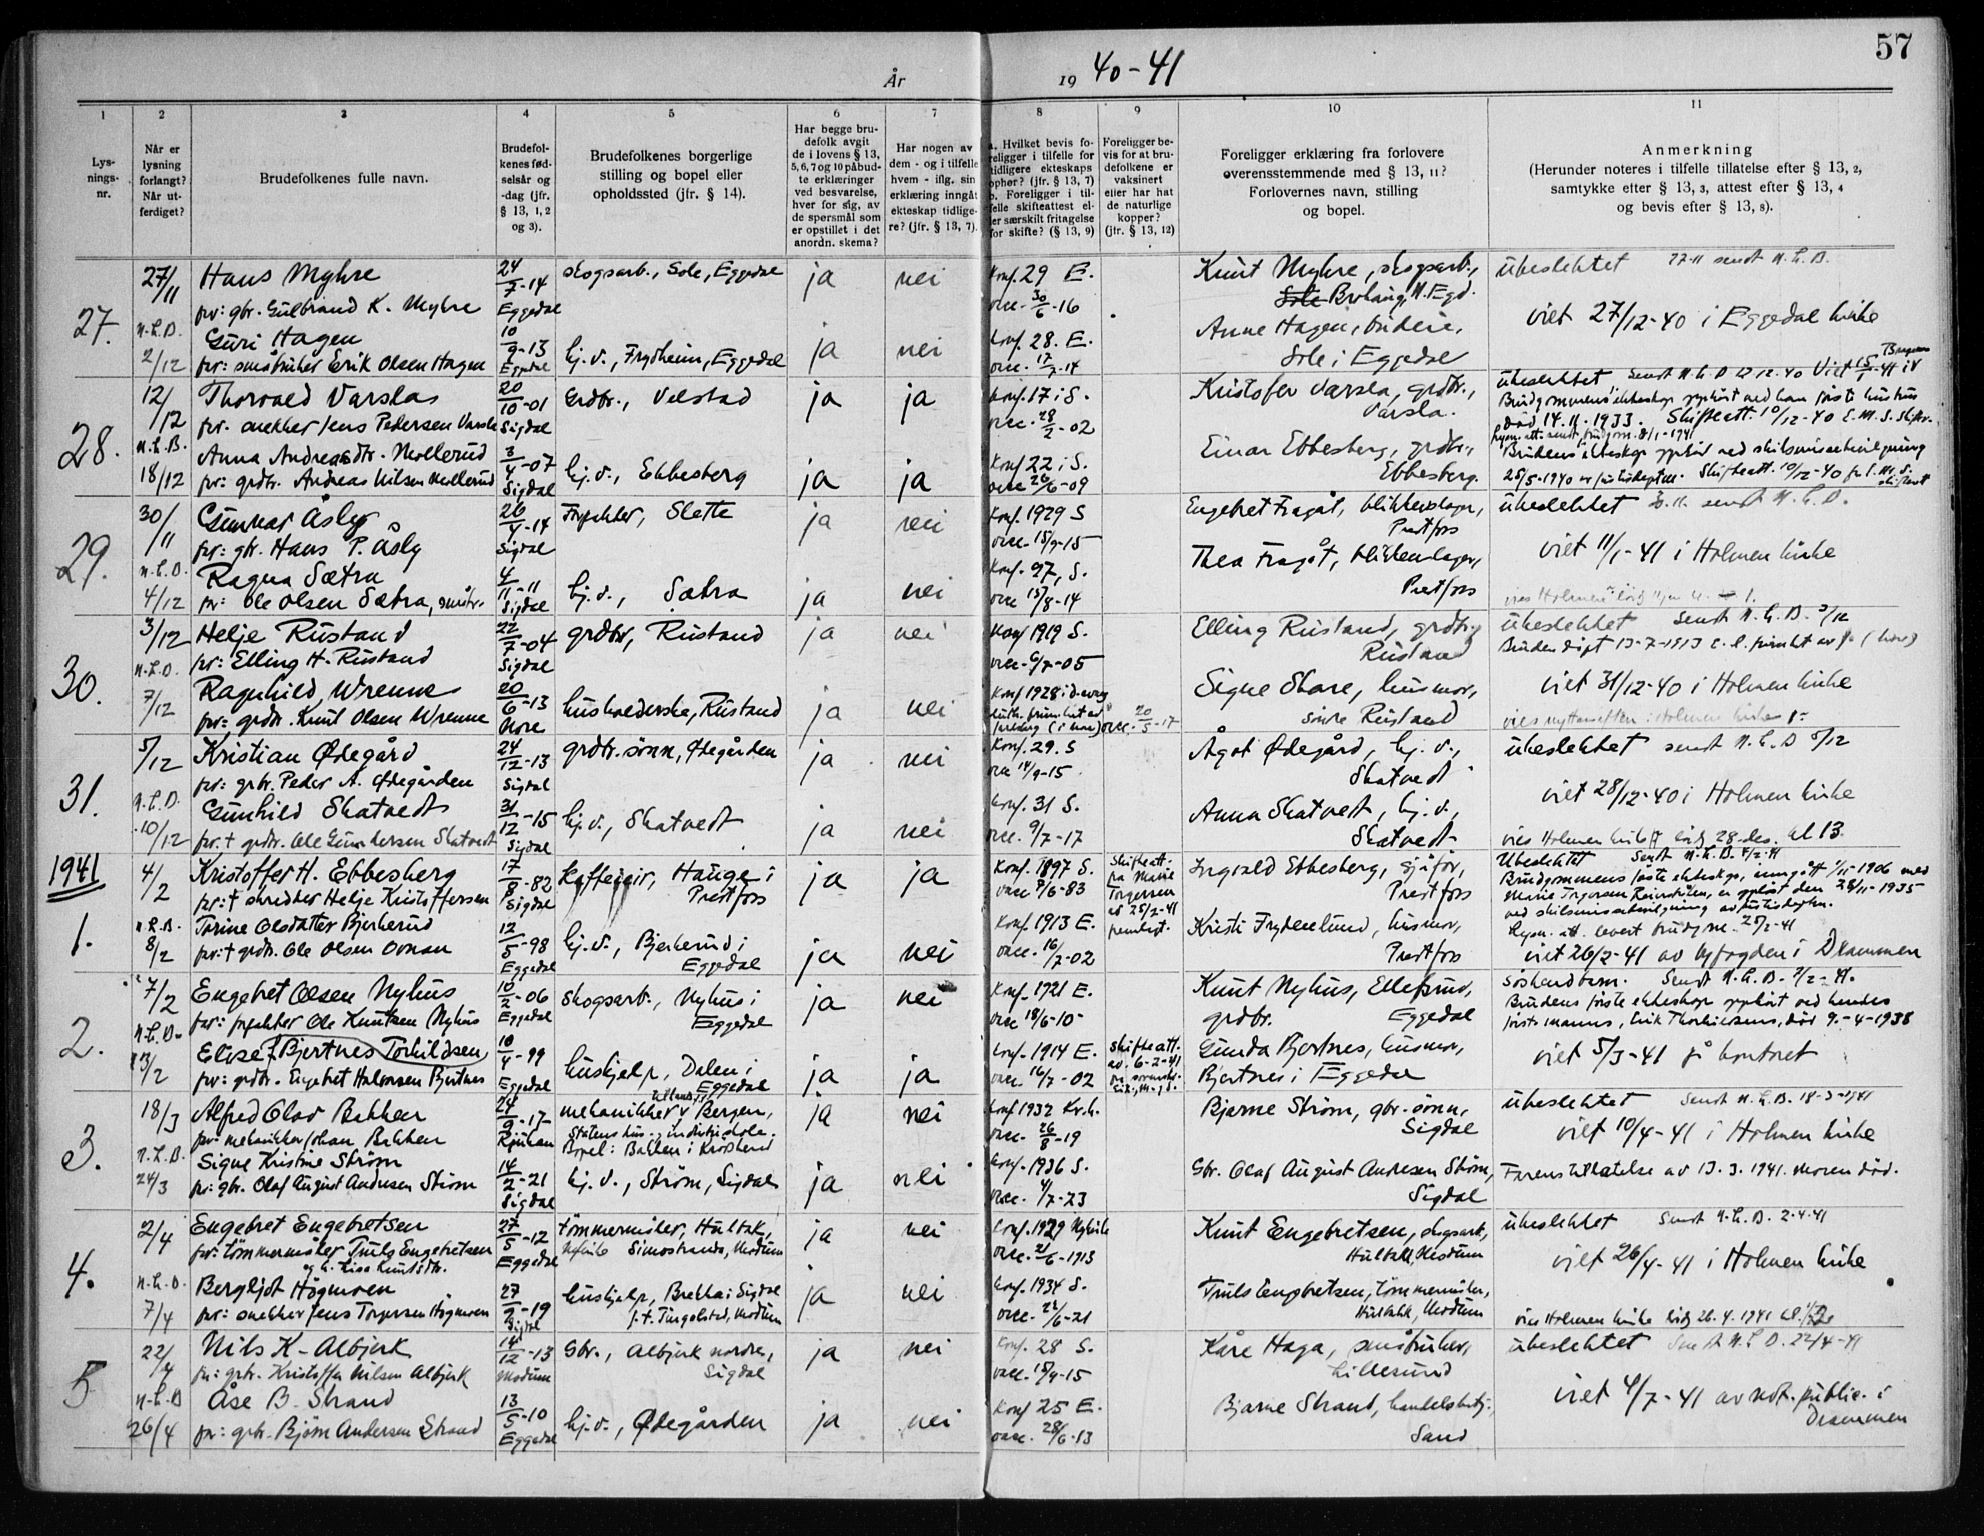 57
År 19 40-41
1 2 3 4 5 6 7 8 9 10 11
Lys-
nings-
nr.
Når er
lysning
forlangt?
Når ut-
ferdiget?
Brudefolkenes fulle navn.
Brudefol-
kenes fød-
selsår og
-dag (jfr.
§ 13, 1, 2
og 3).
Brudefolkenes borgerlige
stilling og bopel eller
opholdssted (jfr. § 14).
Har begge bru-
defolk avgit
de i lovens § 13,
5, 6, 7 og 10 påbud-
te erklæringer
ved besvarelse,
hver for sig, av
de spørsmål som
er opstillet i det
anordn. skema?
Har nogen av
dem - og i tilfelle
hvem - iflg. sin
erklæring inngåt
ekteskap tidlige-
re? (jfr. § 13, 7).
a. Hvilket bevis fo-
religger i tilfelle for
tidligere ekteskaps
ophør? (jfr. § 13, 7)
b. Foreligger i til-
felle skifteattest el-
ler særskilt fritagelse
for skifte? (§ 13, 9)
Foreligger be-
vis for at bru-
defolkene er
vaksinert
eller har hat
de naturlige
kopper?
(jfr. § 13, 12)
Foreligger erklæring fra forlovere
overensstemmende med § 13, 11?
Forlovernes navn, stilling
og bopel.
Anmerkning
(Herunder noteres i tilfelle tillatelse efter § 13, 2,
samtykke efter § 13, 3, attest efter § 13, 4
og bevis efter § 13, 8).
27.
27/11 Hans Myhre 24/7-14 skogsarb., Sole, Eggedal ja nei Konf. 29 E. Knut Myhre, skogsarb., ubeslektet 27-11 sendt N.L.D.
far: gbr. Gulbrand K. Myhre Eggedal vacc. 30/6-16 Sole N. Egd.
N.L.D. Guri Hagen 10/9-13 hj.v., Frydheim, Eggedal ja nei Konf. 28. E. Anne Hagen, Viet 27/12-40 i Eggedal kirke
2/12 far: småbruker Erik Olsen Hagen Eggedal vacc. 17/7-14 Sole i Eggedal
28.
12/12 Thorvald Varslas 20/10-01 Grdbr., Velstad ja ja Konf. 17 i S. Kristofer Varsla, grdbr., ubeslektet Sendt N.L.D 12.40
far. snekker Jens Pedersen Varsla Sigdal vacc. 28/2-02 Varsla. Brudgommens ekteskap ophørt ved hans første hustrus
død 14.11.1933. Skifteatt. 10/12-40
N.L.D. Anna Andreasdtr. Mollerud 3/4-07 hj.v., Ebbesberg ja ja Konf 22 i S. Einar Ebbesberg, grdbr., Brudens ekteskap ophør ved skilsmissebevilgning
18/12 far: grdbr. Andreas Nilsen Mollerud Sigdal vacc 26/6-09 Ebbesberg. 25/5-1940 Skifteatt. 10/12-40
29.
30/11 Gunnar Åsly 26/4-14 Slette ja nei Konf. 1929 S Engebret Fragåt, blikkenslager, ubeslektet sendt N.L.D.
far: gbr. Hans P. Åsly Sigdal vacc. 15/9-15 Prestfoss
N.L.D. Ragna Sætra 4/11-11 hj.v., Sætra ja nei Konf. 27, S. Thea Fragåt, blikkenslager, viet 11/1-41 i Holmen kirke
4/12 far: Ole Olsen Sætra, småbr. Sigdal vacc 15/8-14 Prestfoss
30.
3/12 Helje Rustand 22/7-04 grdbr, Rustand ja nei Konf 1919 S. Elling Rustand, grdbr, ubeslektet Sendt N.L.D. 3/12
far: Elling H. Rustand Sigdal vacc. 6/7-05 Rustand Bruden døpt 13-7-1913
N.L.D. Ragnhild Wrenne 20/6-13 husholderske, Rustand ja nei Konf 1928 Signe Skare, husmor, viet 31/12-40 i Holmen kirke
7/12 far: grdbr. Knut Olsen Wrenne Nore vacc. 20/5-17 Rustand
31.
5/12 Kristian Ødegård 24/12-13 grdbr. sønn, Ødegården ja nei Konf. 29. S Ågot Ødegård, hj.v., ubeslektet sendt N.L.D 5/12
far: grbr. Peder A. Ødegården Sigdal vacc 14/9-15. Skatvedt
N.L.D. Gunhild Skatvedt 31/12-15 hj.v., Skatvedt ja nei Konf. 31 S. Anna Skatvedt, hj.v., viet 28/12-40 i Holmen kirke
10/12 far: † grdbr. Ole Gundersen Skatvedt Sigdal vacc. 9/7-17 Skatvedt vies Holmen kirke lørdg 28. des. kl 13.
1941
1.
4/2 Kristoffer H. Ebbesberg 17/8-82 Hauge i ja ja Konf. 1897 S. Skifteatt. Ingvald Ebbesberg, sjåfør, Ubeslektet Sendt N.L.D. 8/2-41
far: † skredder Helje Kristoffersen Sigdal Prestfoss vacc 9/6-83 fra Marie Torgersen av 25/2-41 fremligt. Prestfoss Brudgommens første ekteskap, inngått 1/11-1906 med
Marie Torgersen er opløst den 28/11-1935
ved skilsmissebevilgning av
N.L.D. Torine Olsdatter Bjerkerud 12/5-98 hj.v., Bjerkerud i ja nei Konf. 1913 E. Kristi Frydenlund, husmor, Lysn. att. levert brudgom. 25/2-41
8/2 far: † grdbr. Ole Olsen Eggedal Eggedal vacc. 16/7-02 Prestfoss viet 26/2-41 av byfogden i Drammen
2.
7/2 Engebret Olsen Nyhus 10/2-06 skogsarb., Nyhus i ja nei Konf. 1921 E. Knut Nyhus, Ellefsrud, søskendbarn. Sendt N.L.D. 7/2-41.
far: Ole Knutsen Nyhus Eggedal Eggedal vacc 18/6-10 grdbr. Eggedal Brudens første ekteskap ophørt ved hendes
første manns, Erik Thorkildsens, død 9.-4-1938
N.L.D. Elise f. Bjertnes Torkildsen, 10/4-99 hushjelp, Dalen i ja ja Konf. 1914 E. Skifteatt. av. 6-2-41 Gunda Bjertnes, husmor, viet 5/3-41 på kontoret
13/2 far: grdbr. Engebret Halvorsen Bjertnes Eggedal Eggedal vacc. 16/7-02 Bjertnes i Eggedal
3.
18/3 Alfred Olav Bakken 24/9-17 mekanikker v Bergen, ja nei Konf 1932 Kr.h. Bjarne Strøm, gbr. sønn, ubeslektet Sendt N.L.D. 18-3-1941
far: mekanikker Johan Bakken Rjukan Bopel: Bakken i Krødsherad vacc. 26/8-19 Sigdal viet 10/4-41 i Holmen kirke
N.L.D. Signe Kristine Strøm 14/2-21 hj.v., Strøm, Sigdal ja nei Konf. 1936 S. Gbr. Olaf August Andresen Strøm, Farens tillatelse av 13.3.1941. Moren død.
24/3 far: gbr. Olaf August Andresen Strøm Sigdal vacc. 4/7-23 Sigdal
4.
2/4 Engebret Engebretsen 27/5-12 tømmermåler, Hultakk, ja nei Konf. 1929 Nykirke Knut Engebretsen, skogsarb., ubeslektet Sendt N.L.D. 2-4-41
far: tømmermåler Truls Engebretsen Eggedal Simostranda, Modum vacc. 21/6-1913 Hultakk, Modum viet 26/4-41 i Holmen kirke
og h. Lisa Knutsdtr.
N.L.D. Bergljot Högmoen 27/9-19 hushjelp, Brekka i Sigdal ja nei Konf. 1934 S. Truls Engebretsen, tømmermåler,
7/4 far: snekker Jens Torgersen Högmoen Sigdal Modum vacc. 22/6-21 Hultakk, Modum vies Holmen kirke lørdg 26.4.1941
5
22/4 Nils K. Albjerk 14/12-13 Gbr., Albjerk nordre, ja nei Konf. 28 S. Kåre Haga, småbruker, ubeslektet Sendt N.L.D. 22/4-41
far: grbr. Kristoffer Nilsen Albjerk Modum Sigdal vacc. 15/9-15 Lillesund
N.L.D Åse B. Strand 13/5-10 hj.v., Ødegården ja nei Konf 25 E. Bjarne Strand, handelsbetj., viet 4/7-41 av not. public. i
26/4 far: grbr. Bjørn Andersen Strand Eggedal vacc. 28/6-13 Sand Drammen